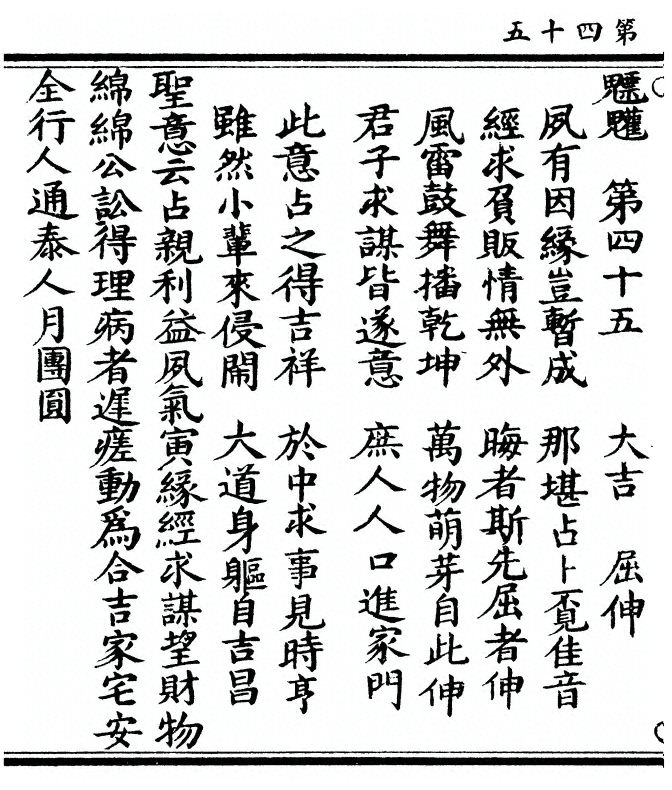 第四十五
魒䰢 第四十五 大吉 屈伸
夙有因緣豈暫成 那堪占卜覔佳音
經求負販情無外 晦者斯先屈者伸
風雷鼓舞播乾坤 萬物萌芽自此伸
君子求謀皆遂意 庶人人口進家門
此意占之得吉祥 於中求事見時亨
雖然小輩來侵鬧 大道身軀自吉昌
聖意云占親利益夙氣寅緣經求謀望財物
綿綿公訟得理病者遲瘥動爲合吉家宅安
全行人通泰人月團圓